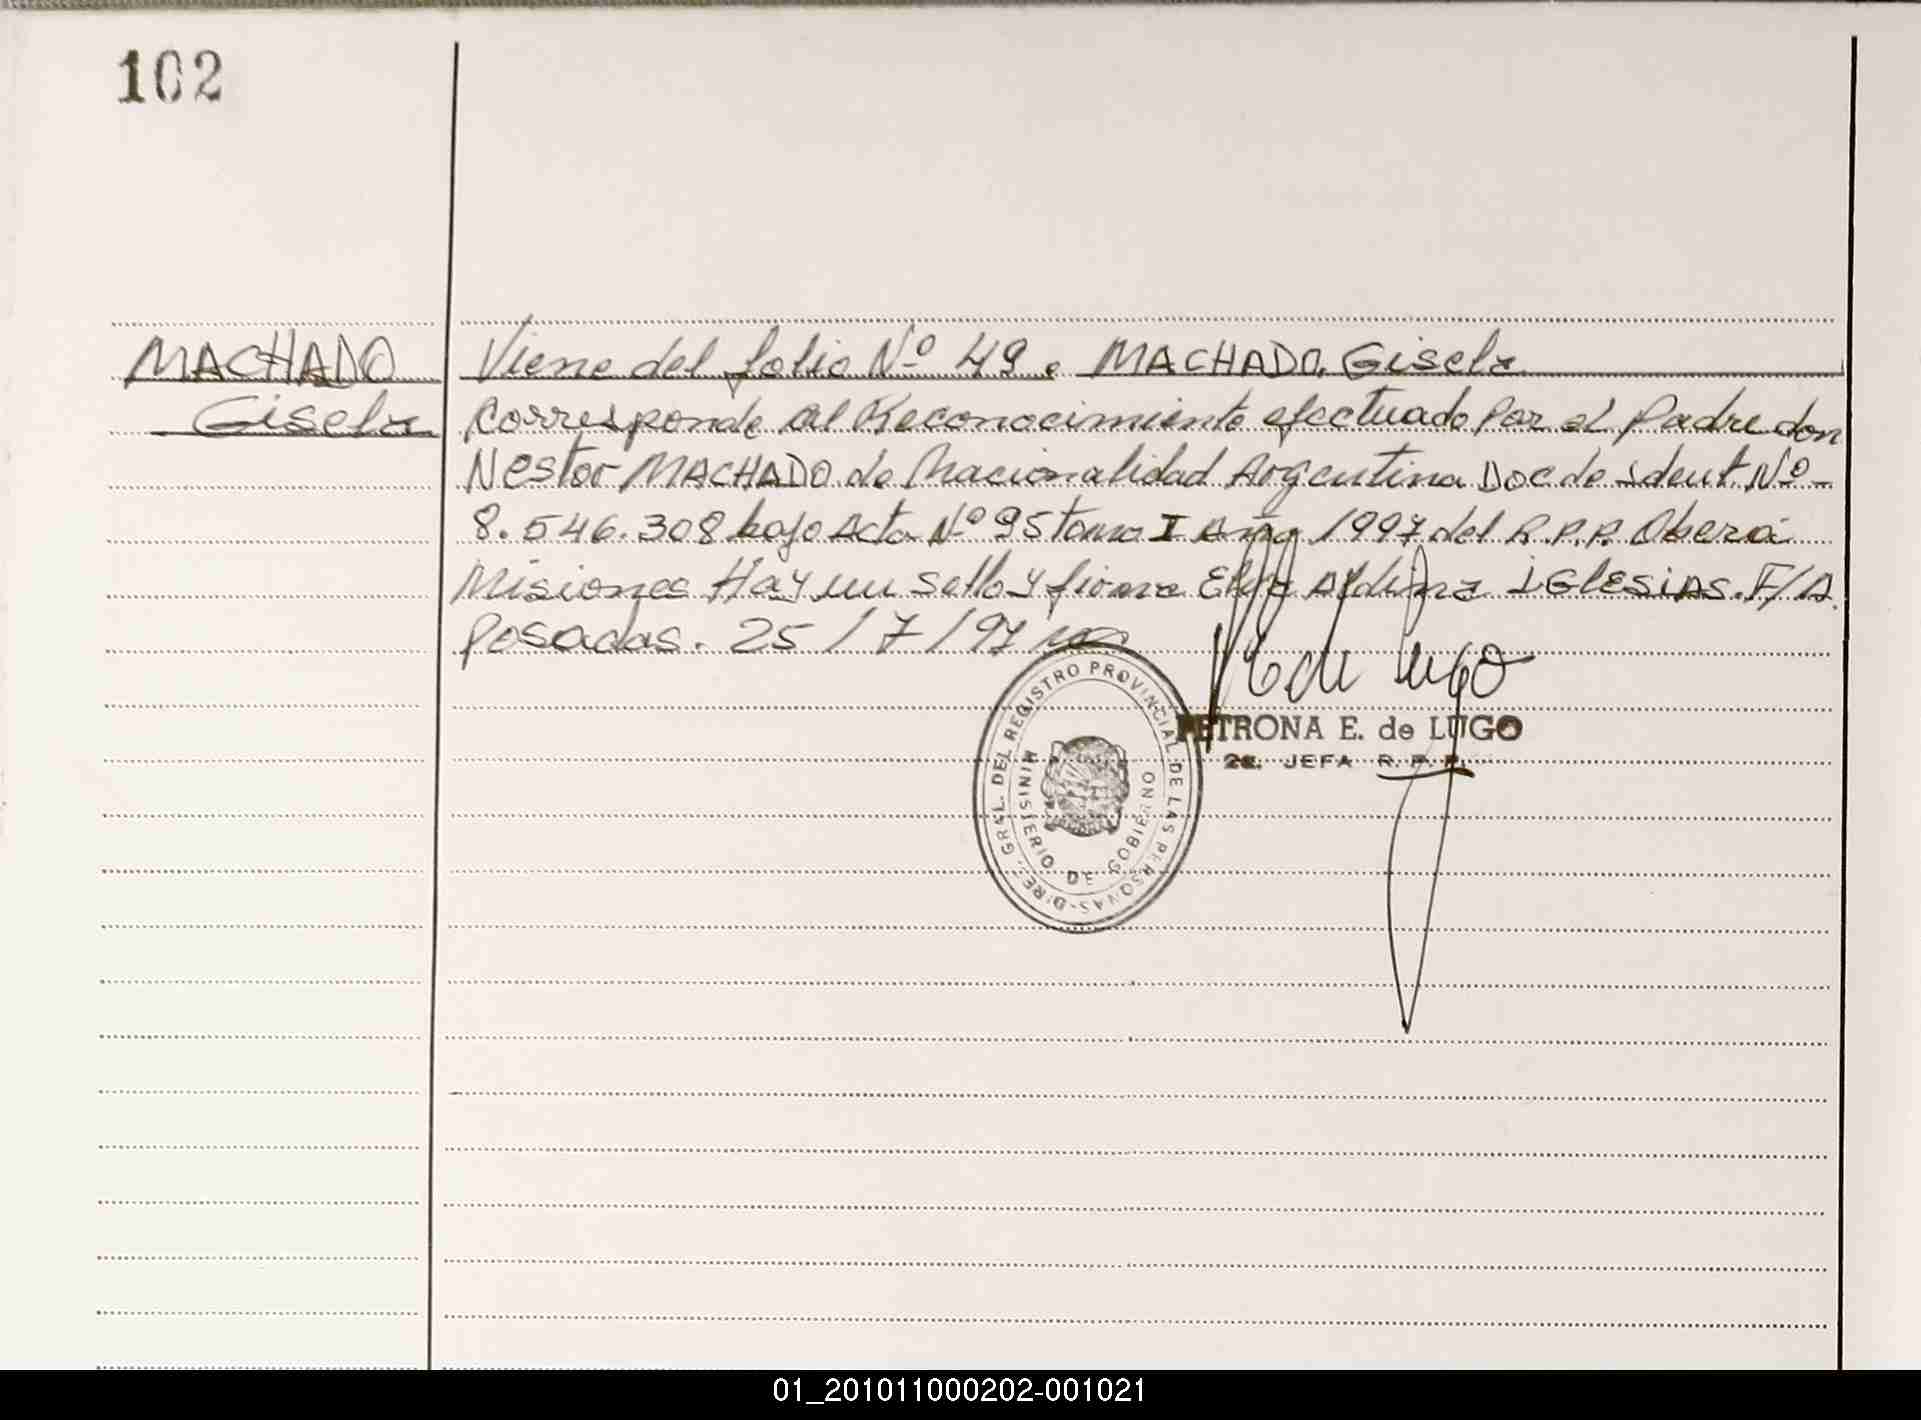 102
MACHADO
Gisela
Viene del folio Nº 49. MACHADO, Gisela
Corresponde al Reconocimiento efectuado Por el Padre don
Nestor MACHADO de Nacionalidad Argentina Doc de ident. Nº-
8.546.308 bajo Acta Nº 95 tomo I Año 1997 del R.P.P. Oberá
Misiones Hay un sello y firma Elva Aldina IGLESIAS. F/A.
Posadas. 25/7/97
E de Lugo
PETRONA E. de LUGO
2a. JEFA R. P. P.
DIREC. GRAL. DEL REGISTRO PROVINCIAL DE LAS PERSONAS-
MINISTERIO DE GOBIERNO
01_201011000202-001021